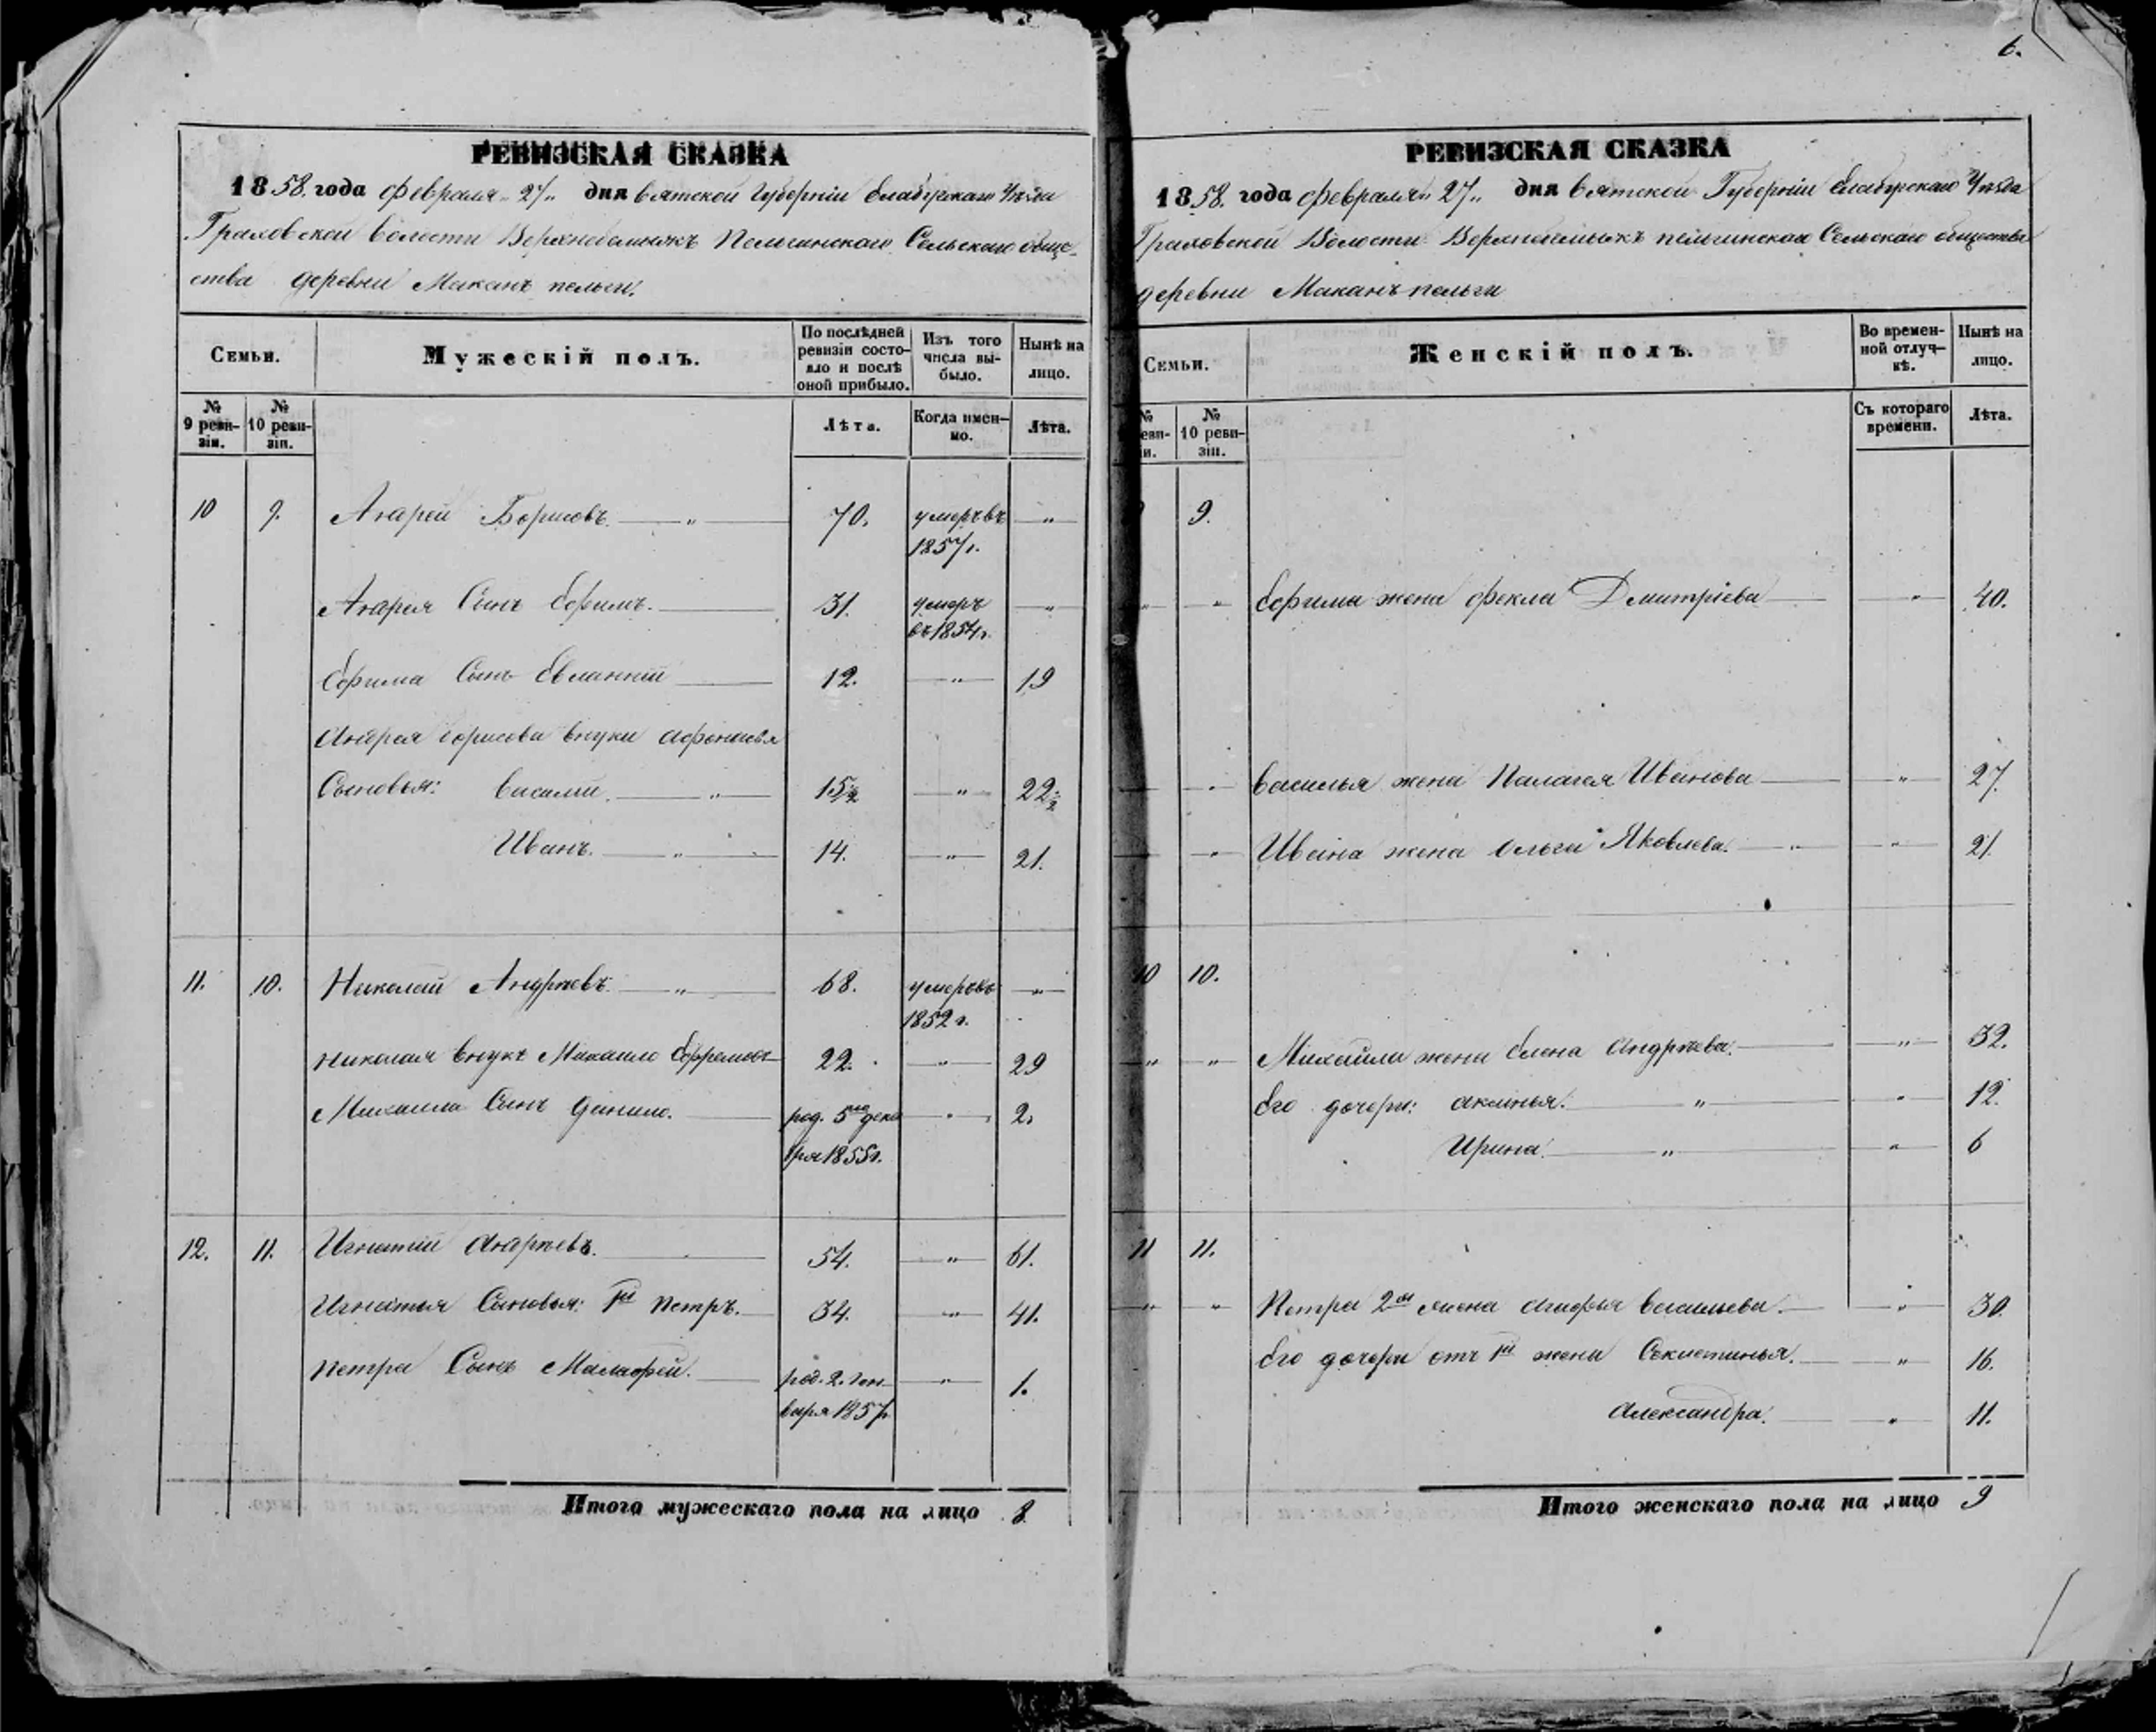 6.
РЕВИЗСКАЯ СКАЗКА
1858. года февраля 27„ дня Вятской Губерніи Елабужскаго Уѣзда
Граховской Волости Пельгинскаго Сельскаго обще-
ства деревни Маканъ пельги.
Семьи.
Мужескій полъ.
По послѣдней ревизіи состояло и послѣ оной прибыло.
Изъ того числа выбыло.
Нынѣ на лицо.
№ 9 ревизіи.
№ 10 ревизіи.
Лѣта.
Когда именно.
Лѣта.
10 9. Андрей Борисовъ. „ 70. умеръ въ „
1857 г.
Андрея Сынъ Ефимъ. 31. умеръ „
въ 1854 г.
Ефима Сынъ Евланпій 12. „ 19
Андрея Борисова внуки Афонасья
Сыновья: Василій. „ 15 1/2 „ 22 1/2
Иванъ. „ 14. „ 21.
11. 10. Николай Андреевъ. „ 68. умеръ въ „
1852 г.
Николая внукъ Михаило Ефремовъ 22. „ 29
Михаила Сынъ Данило. род. 5го дека „ 2.
бря 1855 г.
12. 11. Игнатій Андреевъ. 54. „ 61.
Игнатья Сыновья: 1й Петръ. 34. „ 41.
Петра Сынъ Малафей. род. 2. Ген „ 1.
варя 1857 г.
Итого мужескаго пола на лицо 8
РЕВИЗСКАЯ СКАЗКА
1858. года февраля 27„ дня Вятской Губерніи Елабужскаго Уѣзда
Граховской Волости пельгинскаго Сельскаго общества
деревни Маканъ-пельги
Семьи.
Женскій полъ.
Во временной отлучкѣ.
Нынѣ на лицо.
№ 10 ревизіи.
Съ котораго времени.
Лѣта.
9.
„ „ Ефима жена Фекла Дмитріева „ 40.
„ Василья жена Палагея Иванова „ 27.
„ Ивана жена Ольга Яковлева. „ „ 21.
10 10.
„ „ Михайла жена Елена Андреева. „ 32.
Его дочери: Аклинья. „ „ 12.
Ирина. „ „ 6
11 11.
„ „ Петра 2ая жена Агафья Васильева. „ 30.
Его дочери отъ 1й жены Секлетинья. „ 16.
Александра. „ 11.
Итого женскаго пола на лицо 9